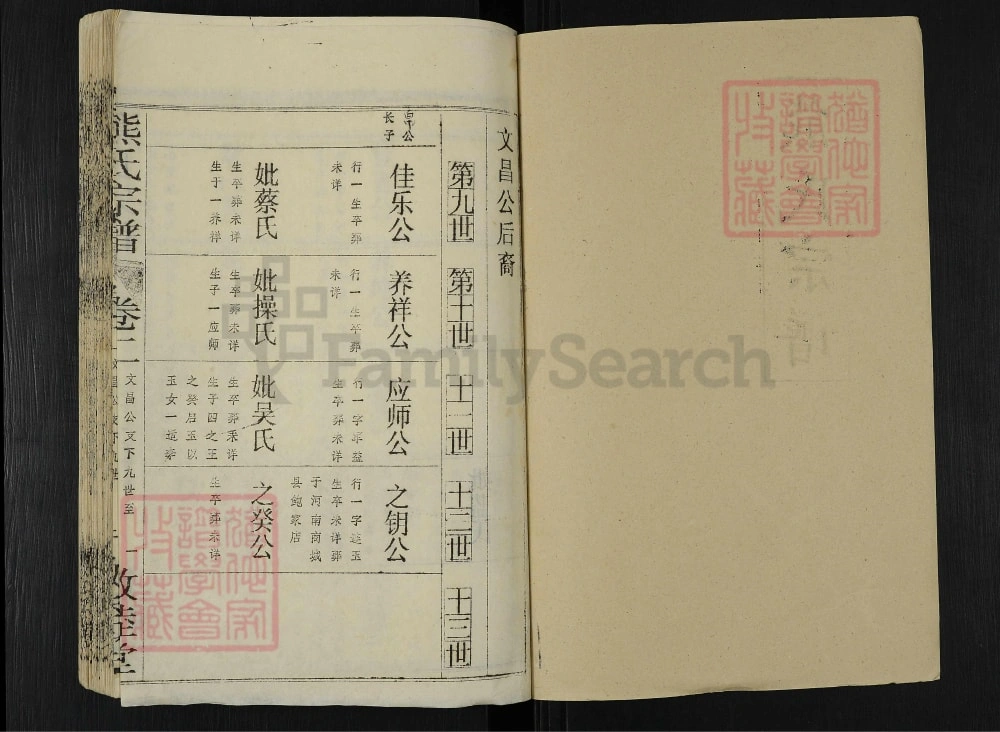 文昌公后裔
第九世
第十世
十一世
十二世
十三世
长子
佳乐公
行一生卒葬
未详
妣蔡氏
生卒葬未详
生于一养祥
养祥公
行一生卒葬
未详
妣操氏
生卒葬未详
生子一应师
应师公
生卒葬未详
妣吴氏
生卒葬未详
生于四之玉
之癸启玉以
玉女一适
之钥公
行一字连玉
生卒未详葬
于河南商城
县鲍家店
之癸公
生卒葬未详
熊氏宗谱
卷二
文昌公支下九世至
敦睦堂
FamilySearch